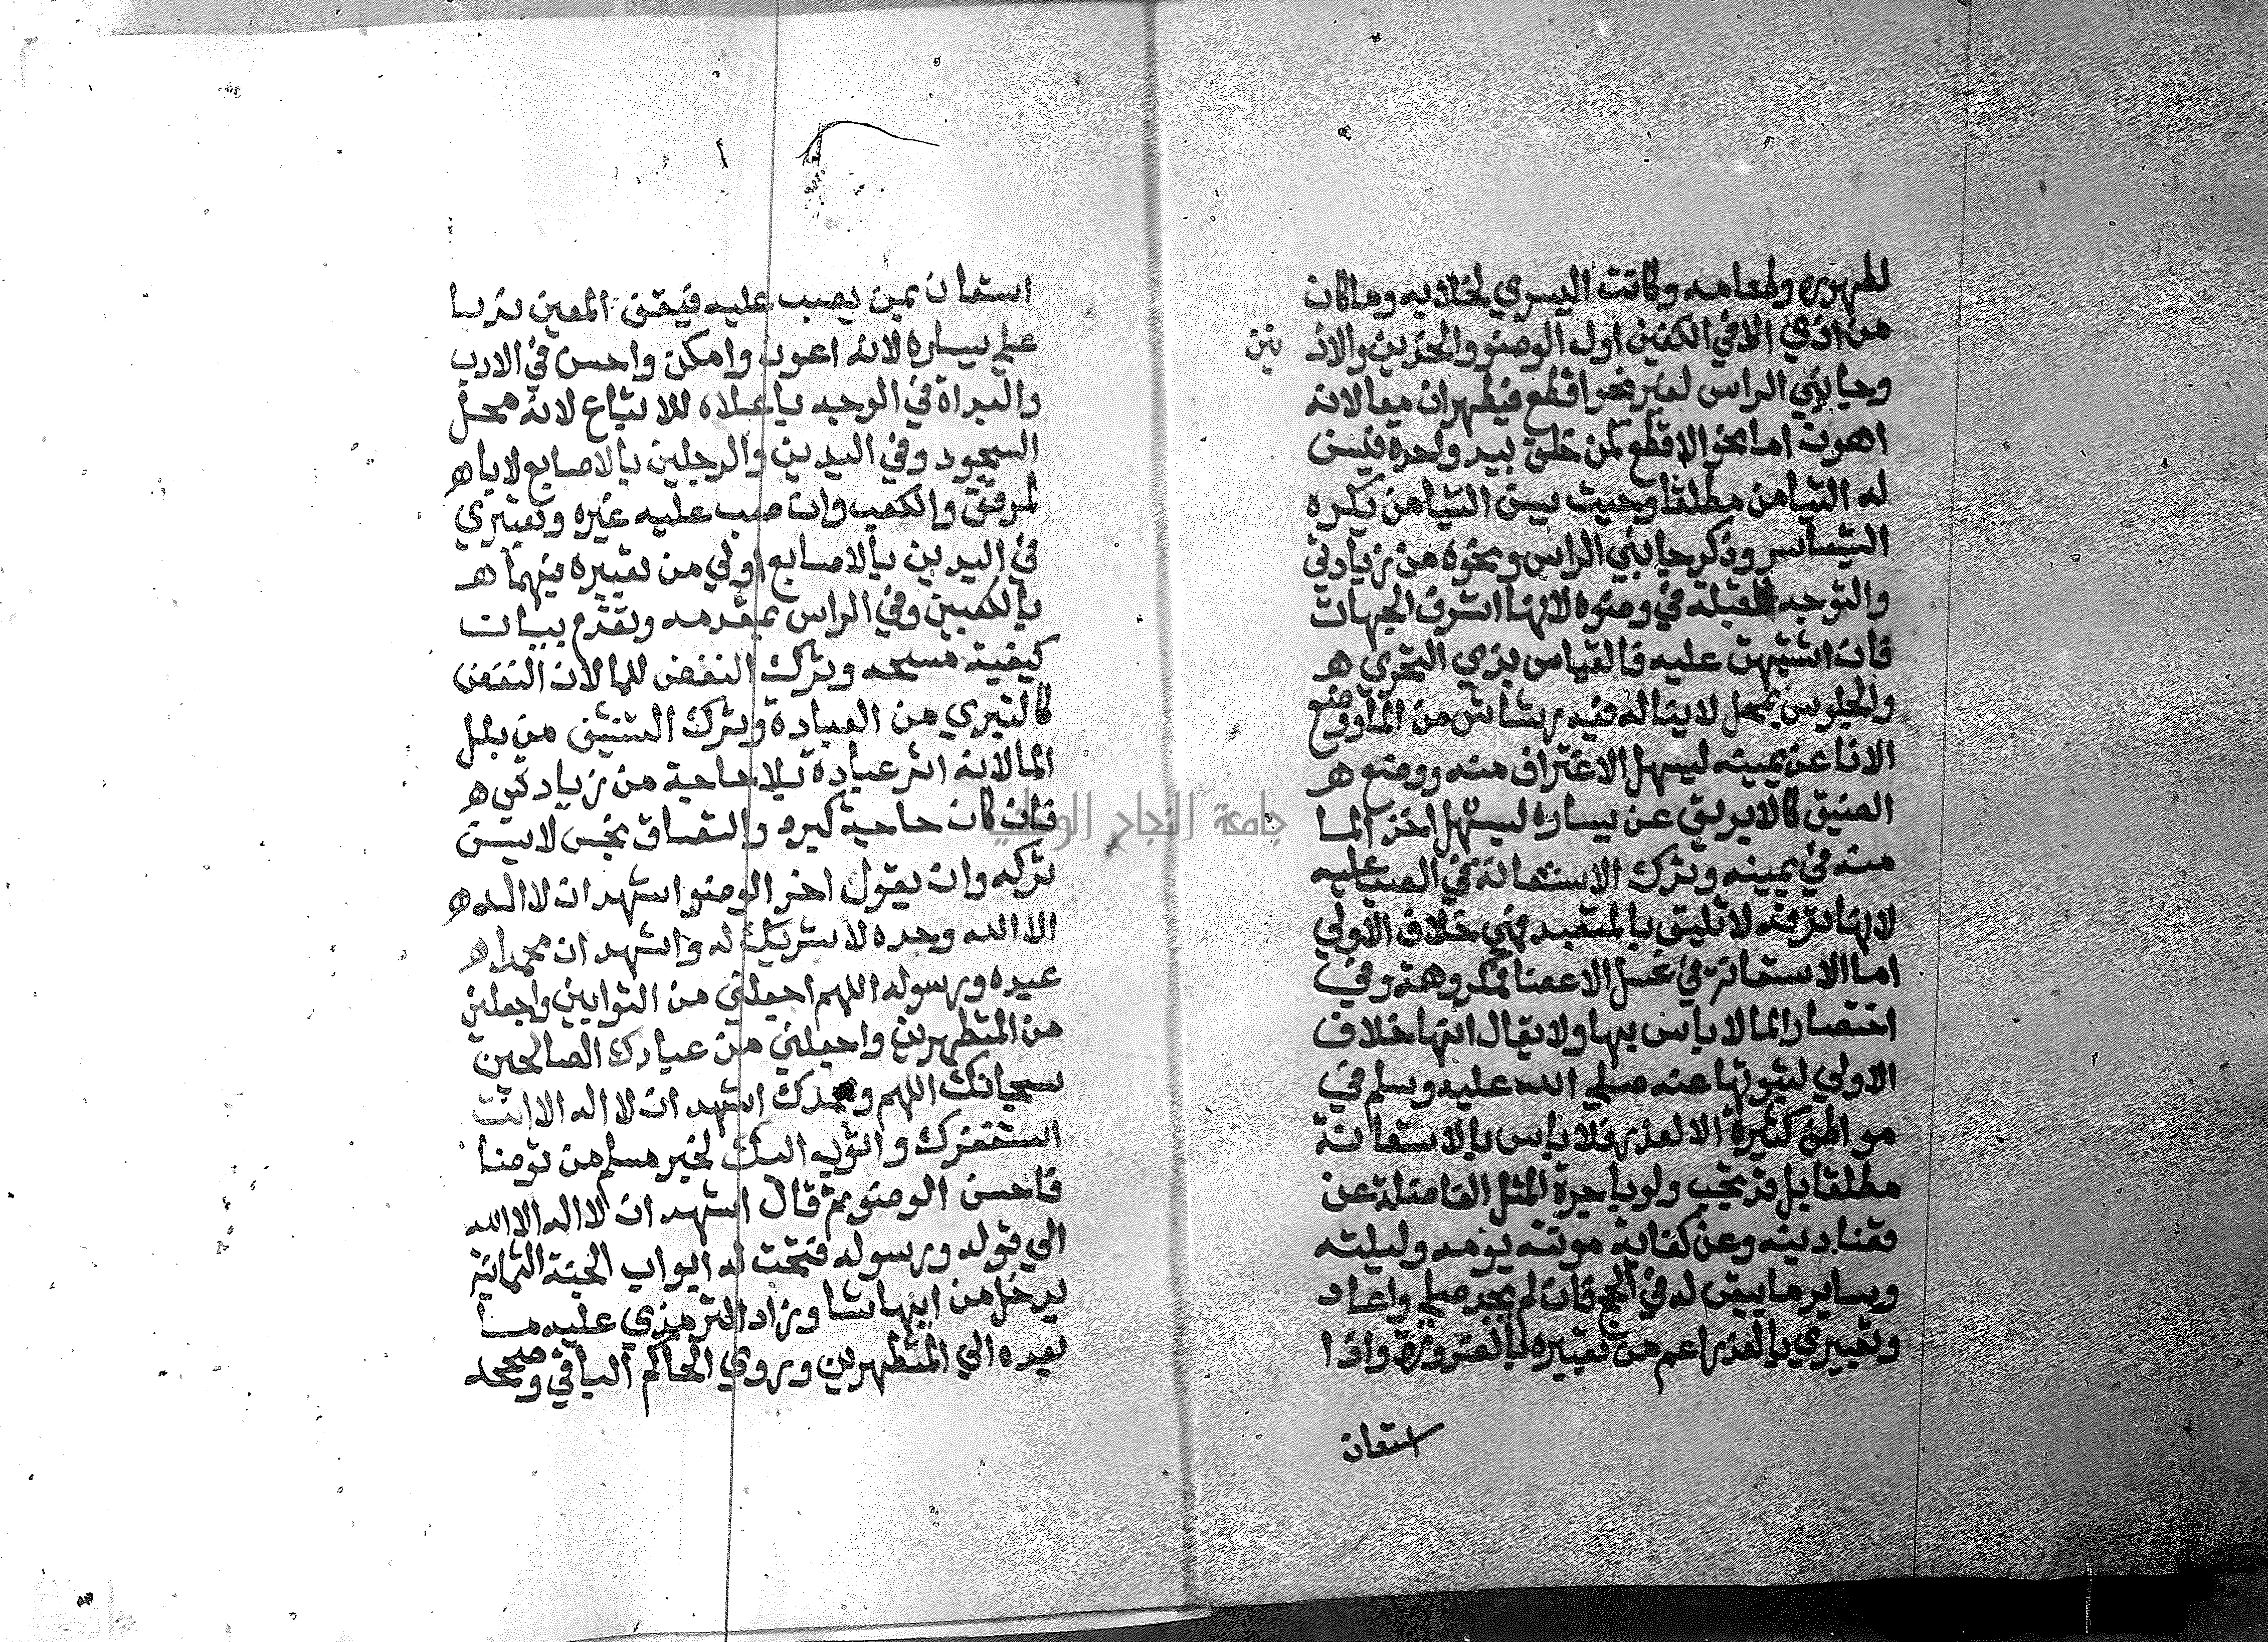 لطهوره وطعامه وكانت اليسري لخلايه وما كان
من اذي الا في الكفين اول الوضو والخدين والاذ نين
وجانبي الراس لغير نحو اقطع فيطهران معا لانه
اهون اما نحو الاقطع كمن خلق بيد واحده فيسن
له التيامن مطلقا وحيث يسن التيامن يكره
التياسر وذكر جانبي الراس ونحوه من زيادتي
والتوجه لقبلة في وضوه لانها اشرف الجهات
فان اشتبهت عليه فالقياس بذي التحري ه
والجلوس بمحل لا يناله فيه رشاش من الما ووضع
الانا عن يمينه ليسهل الاغتراف منه ووضع ه
الضيق كالابريق عن يساره ليسهل اخذ الما
منه في يمينه وترك الاستعانة في الصب عليه
لانها ترفه لا تليق بالمتعبد فهي خلاف الاولي
اما الاستعانة في غسل الاعضا فمكروهة وفي
احتضار الما لا باس بها ولا يقال انها خلاف
الاولي لثبوتها عنه صلي الله عليه وسلم في
مواطن كثيرة الا لعذر فلا باس بالاستعانة
مطلقا بل قد تجب ولو باجرة المثل الفاضلة عن
قضا دينه وعن كفاية مونته يومه وليلته
وساير ما يبقي له في الحج فان لم يجد صلي واعاد
وتعبيري بالعذر اعم من تعبيره بالضرورة واذا
استعان
استعان بمن يصب عليه فيقف المعين ندبا
علي يساره لانه اعون وامكن واحسن في الادب
والبداة في الوجه باعلاه للاتباع لانه محل
السجود وفي اليدين والرجلين بالاصابع لا با ه
لمرفق والكعب وان صب عليه غيره وتعبيري
في اليدين بالاصابع اولي من تعبيره فيهما ه
بالكعبين وفي الراس بمقدمه وتقدم بيان
كيفية مسحه وترك النفض للما لان النفض
كالتبري من العبادة وترك التنشيف من بلل
الما لانه اثر عبادة بلا حاجة من زيادتي ه
فان كان حاجة كبرد والتصاق نجس لا يسن
تركه وان يقول اخر الوضو اشهد ان لا اله ه
الا الله وحده لا شريك له واشهد ان محمدا ه
عبده ورسوله اللهم اجعلني من التوابين واجعلني
من المتطهرين واجعلني من عبادك الصالحين
سبحانك اللهم وبحمدك اشهد ان لا اله الا انت
استغفرك واتوب اليك لخبر مسلم من توضا
فاحسن الوضو ثم قال اشهد ان لا اله الا الله
الي قوله ورسوله فتحت له ابواب الجنة الثمانية
يدخل من ايها شا وزاد الترمذي عليه ما
بعده الي المتطهرين وروي الحاكم الباقي وصححه